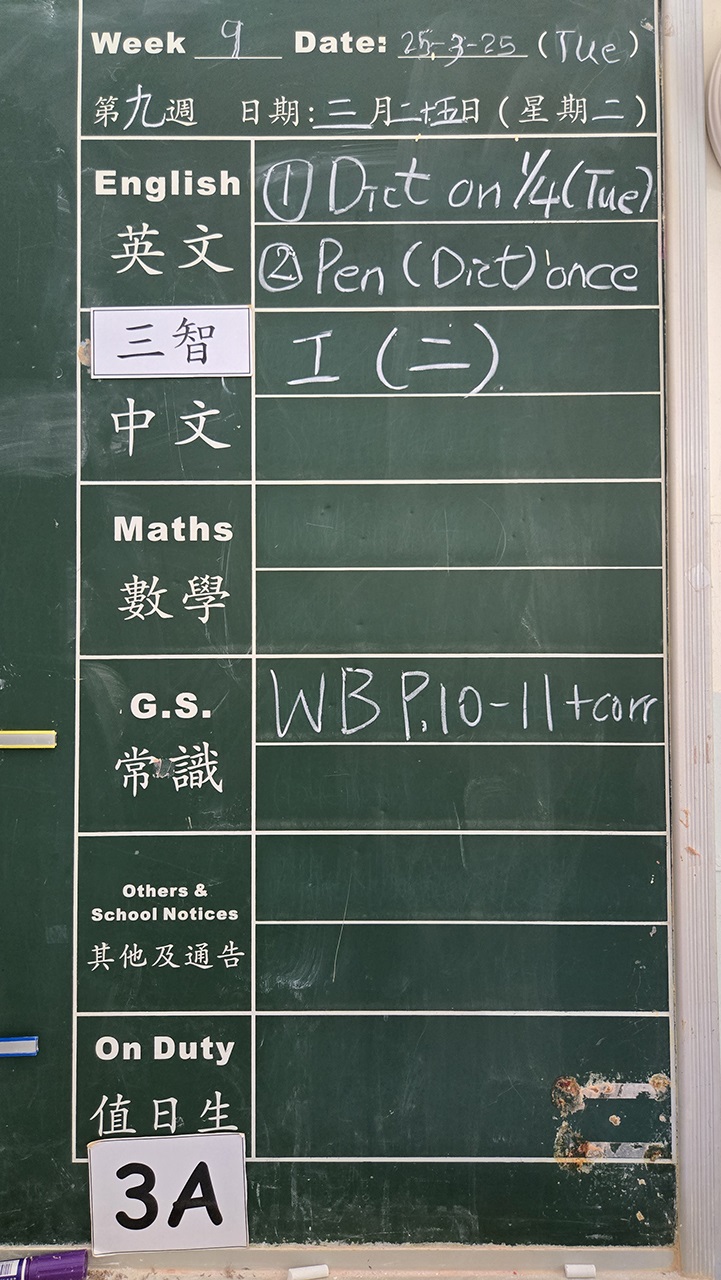 Week 9 Date: 25-3-25 (Tue)
第九週 日期:三月二十五日(星期二)
English
① Dict on 1/4 (Tue)
英文
② Pen (Dict) once
三智
工(二)
中文
Maths
數學
G.S.
WB P.10-11+corr
常識
Others &
School Notices
其他及通告
On Duty
值日生
3A